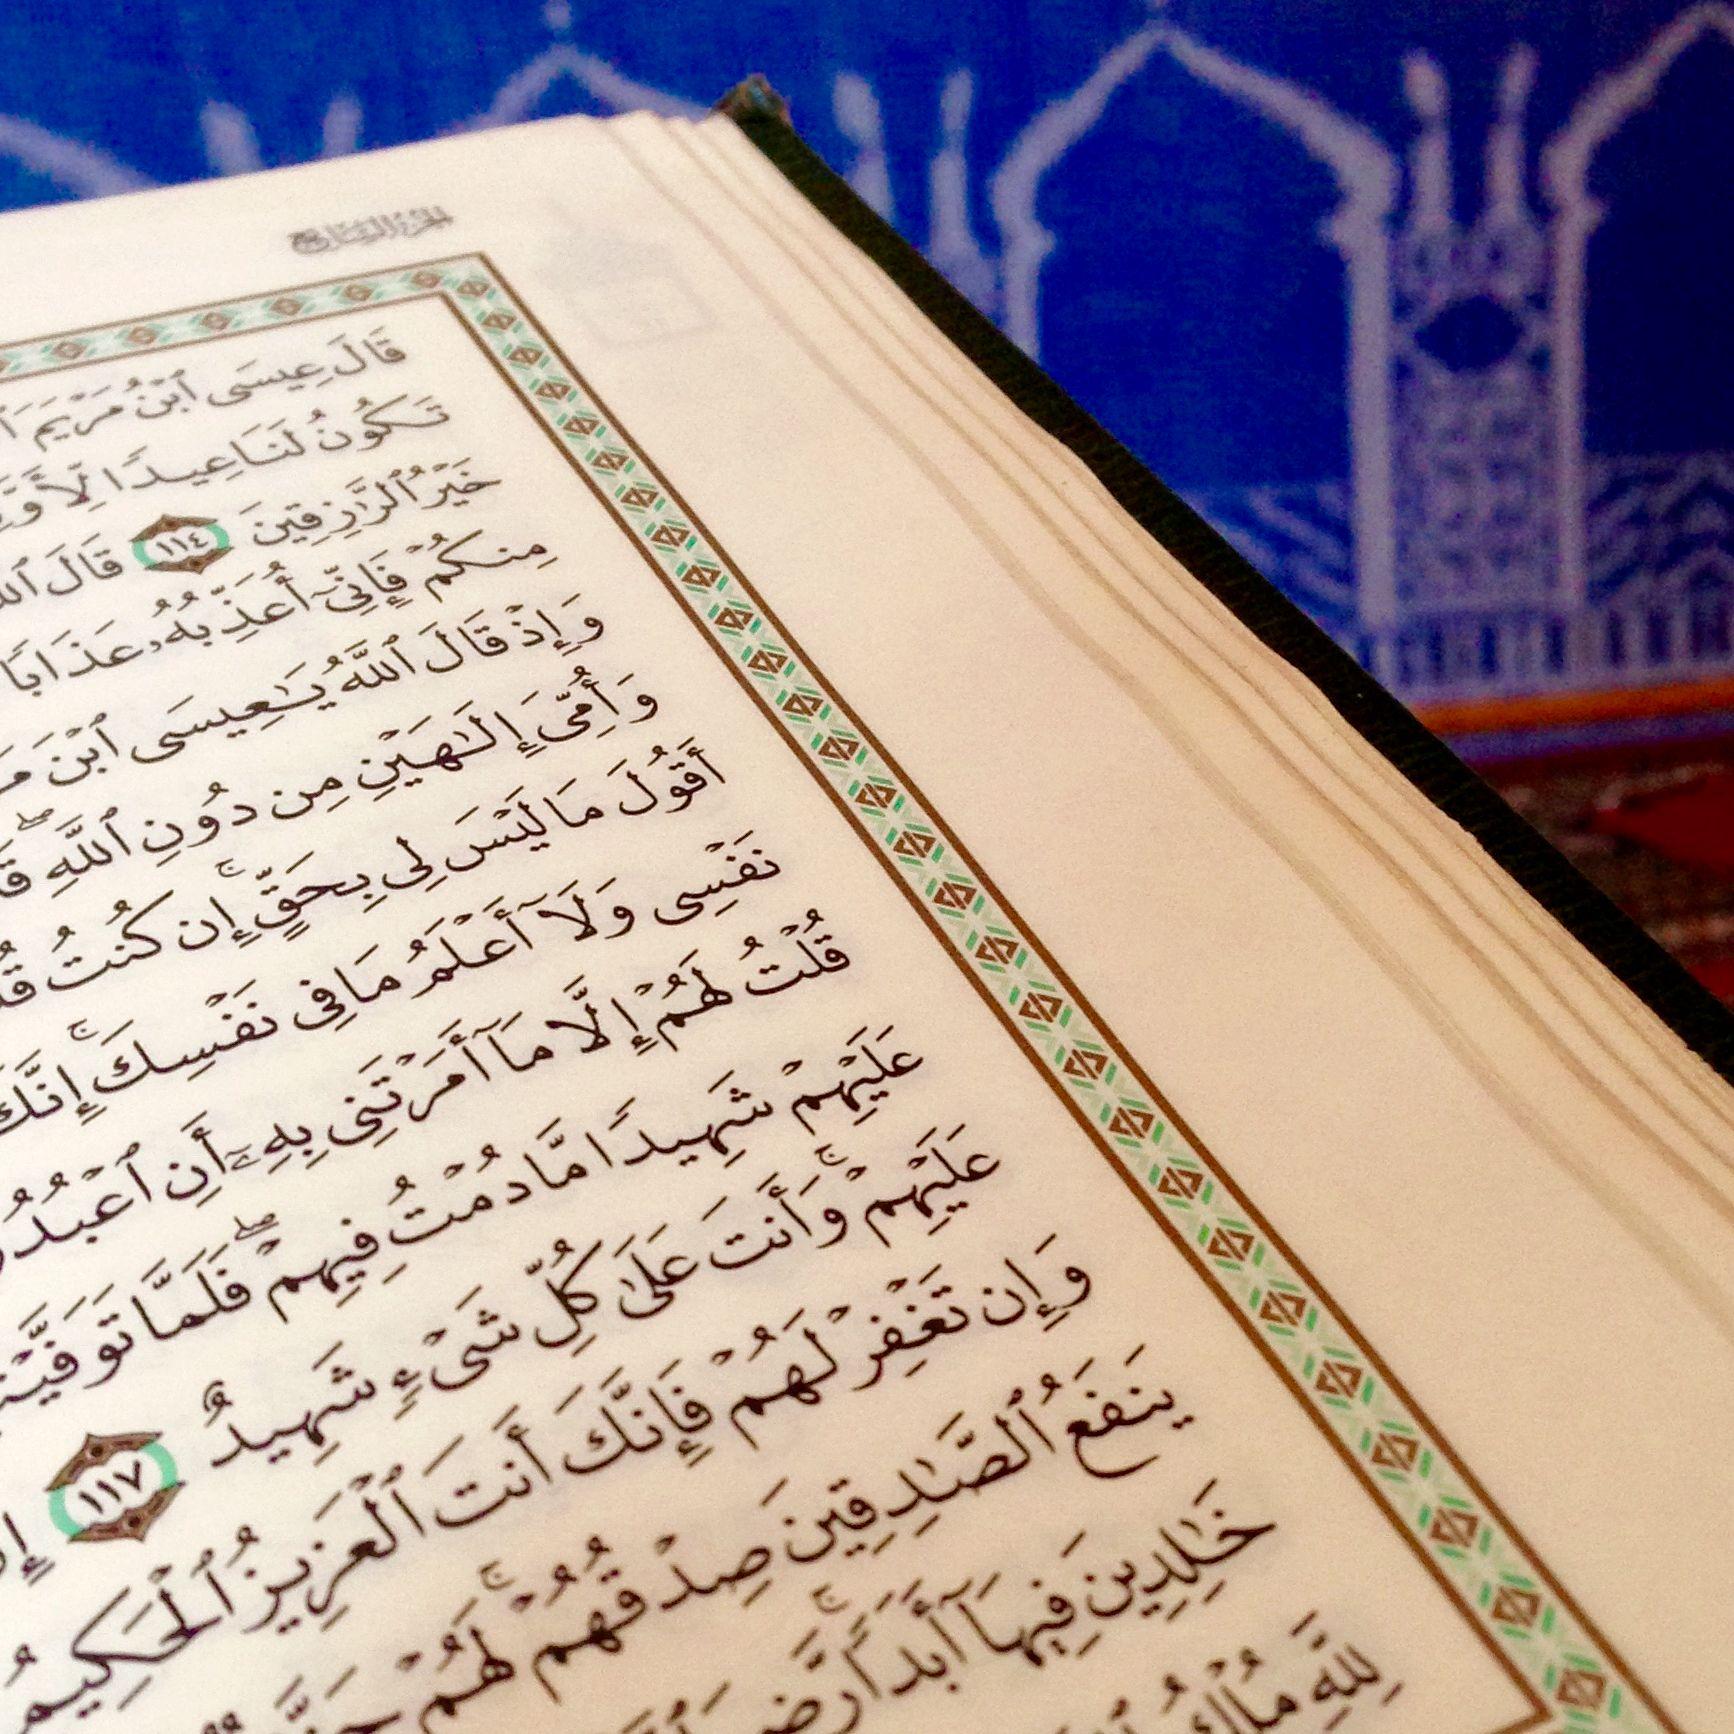 الجزء السابع
قَالَ عِيسَى ٱبْنُ مَرْيَمَ
تَكُونُ لَنَا عِيدًا لِّأَوَّلِنَا
خَيْرُ ٱلرَّٰزِقِينَ ١١٤ قَالَ ٱللَّهُ
مِنكُمْ فَإِنِّىٓ أُعَذِّبُهُۥ عَذَابًا
وَإِذْ قَالَ ٱللَّهُ يَٰعِيسَى ٱبْنَ
وَأُمِّىَ إِلَٰهَيْنِ مِن دُونِ ٱللَّهِۖ
أَقُولَ مَا لَيْسَ لِى بِحَقٍّۚ إِن كُنتُ
نَفْسِى وَلَآ أَعْلَمُ مَا فِى نَفْسِكَۚ إِنَّكَ
قُلْتُ لَهُمْ إِلَّا مَآ أَمَرْتَنِى بِهِۦٓ أَنِ ٱعْبُدُوا۟
عَلَيْهِمْ شَهِيدًا مَّا دُمْتُ فِيهِمْۖ فَلَمَّا تَوَفَّيْتَنِى
عَلَيْهِمْۚ وَأَنتَ عَلَىٰ كُلِّ شَىْءٍ شَهِيدٌ ١١٧
وَإِن تَغْفِرْ لَهُمْ فَإِنَّكَ أَنتَ ٱلْعَزِيزُ ٱلْحَكِيمُ
يَنفَعُ ٱلصَّٰدِقِينَ صِدْقُهُمْۚ لَهُمْ
خَٰلِدِينَ فِيهَآ أَبَدًاۚ رَّضِىَ
لِلَّهِ مُلْكُ